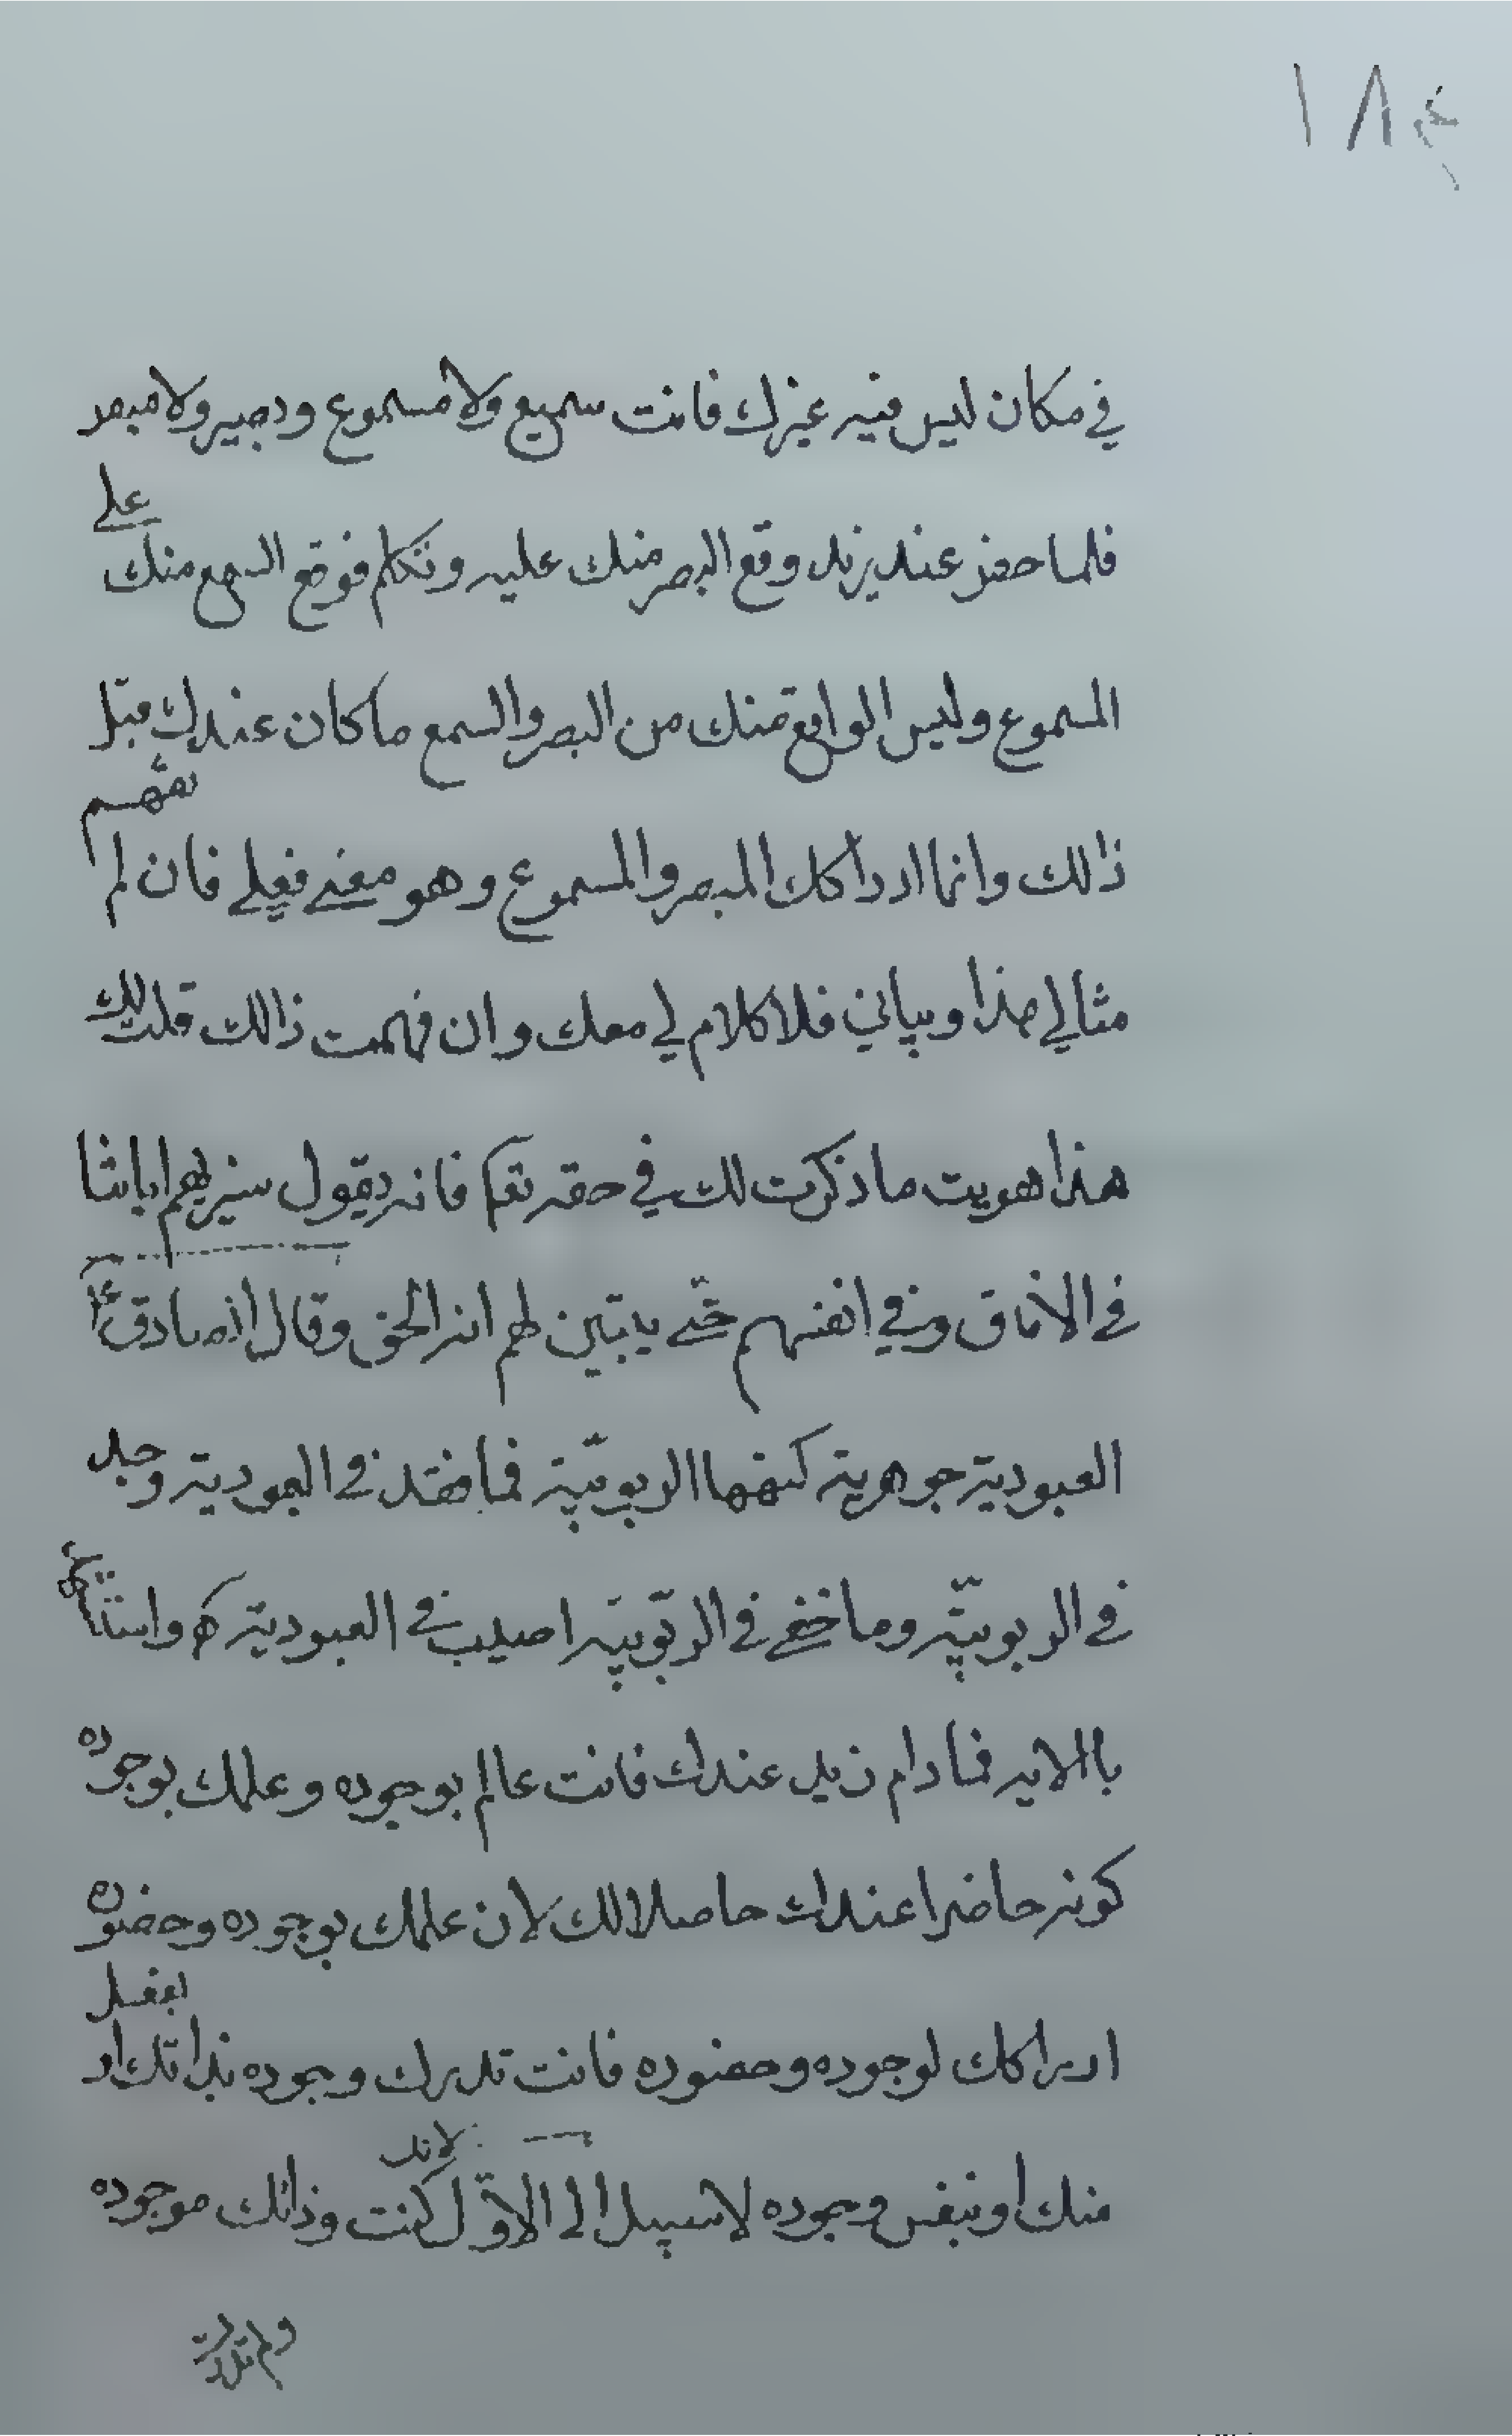 ١٨٤
في مكان ليس فيه غيرك فانت سميع ولا مسموع وبصير ولا مبصر
فلما حضر عند زيد وقع البصر منك عليه وتكلم فوقع السمع منك على
المسموع وليس الواقع منك من البصر والسمع ما كان عندك قبل
ذالك وانما ادراكك المبصر والمسموع وهو معنى فعلي فان لم تفهم
مثالي هذا وبياني فلا كلام لي معك وان فهمت ذالك قلت لك
هذا هويت ما ذكرت لك في حقه تعا فانه يقول سنريهم اياتنا
في الافاق وفي انفسهم حتى يتبين لهم انه الحق وقال الصادق ع
العبودية جوهرية كنهها الربوبية فما فقد في العبودية وجد
في الربوبيّة وما خفي في الربوبيّة اصيب في العبودية واستشهد
بالاية فما دام زيد عندك فانت عالم بوجوده وعلمك بوجوده
كونه حاضرا عندك حاصلا لك لان علمك بوجوده وحضوره
ادراكك لوجوده وحضوره فانت تدرك وجوده بذاتك او بفعل
منك او بنفس وجوده لا سبيل الى الاوّل لانك كنت وذاتك موجوده